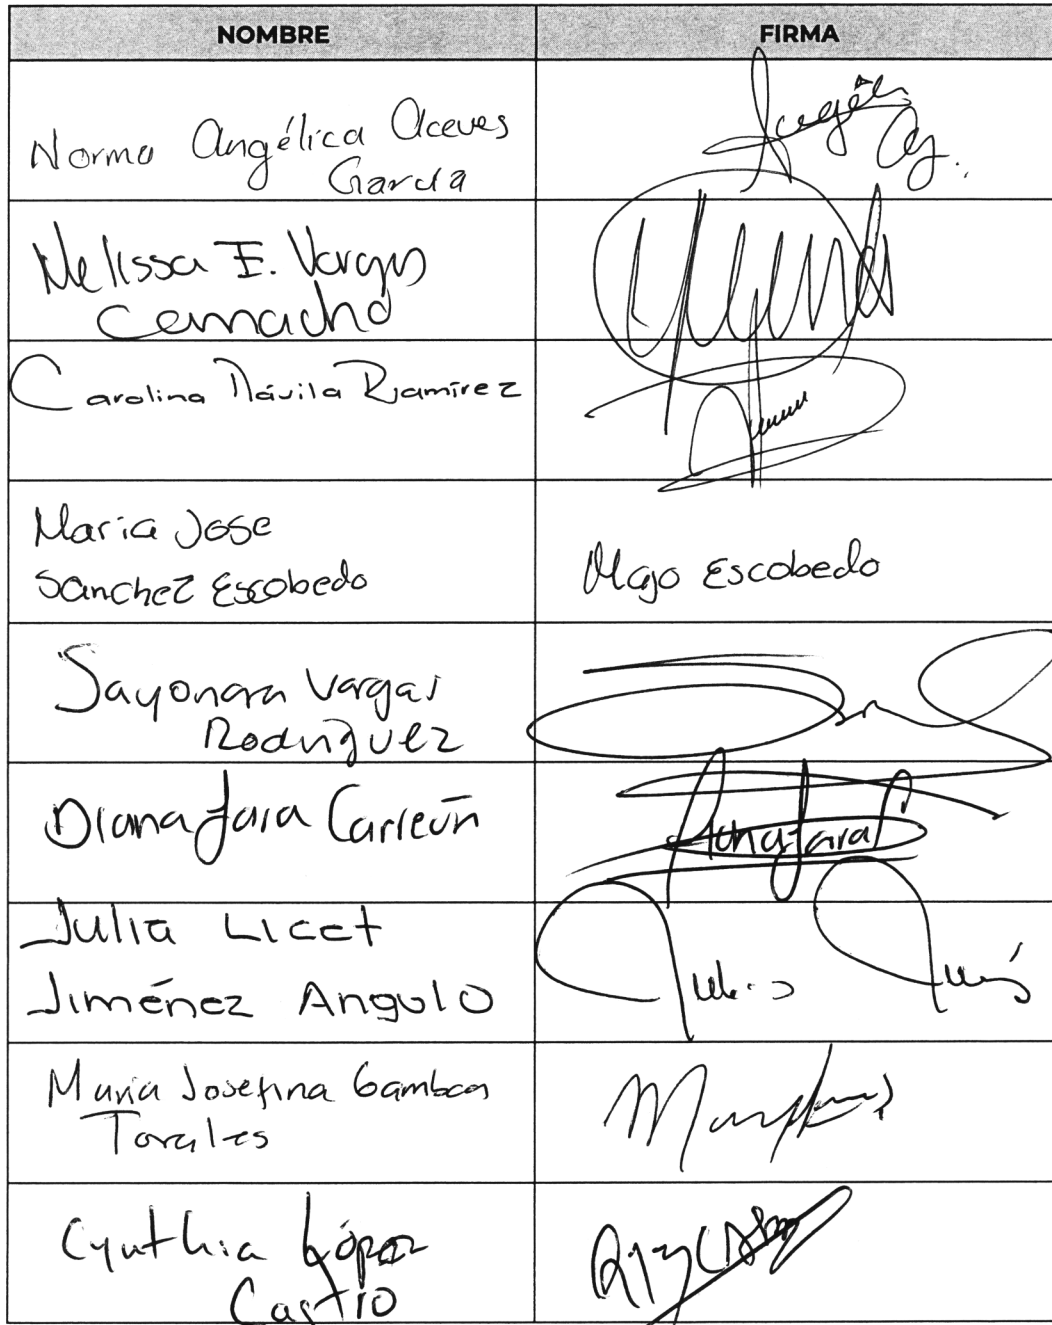 NOMBRE FIRMA
Norma Angélica Aceves
García
Melissa E. Vargas
Camacho
Carolina Dávila Ramírez
Maria Jose
Sanchez Escobedo
Majo Escobedo
Sayonara Vargas
Rodríguez
Diana Lara Carreón
Julia Licet
Jiménez Angulo
Maria Josefina Gamboa
Torales
Cynthia López
Castro